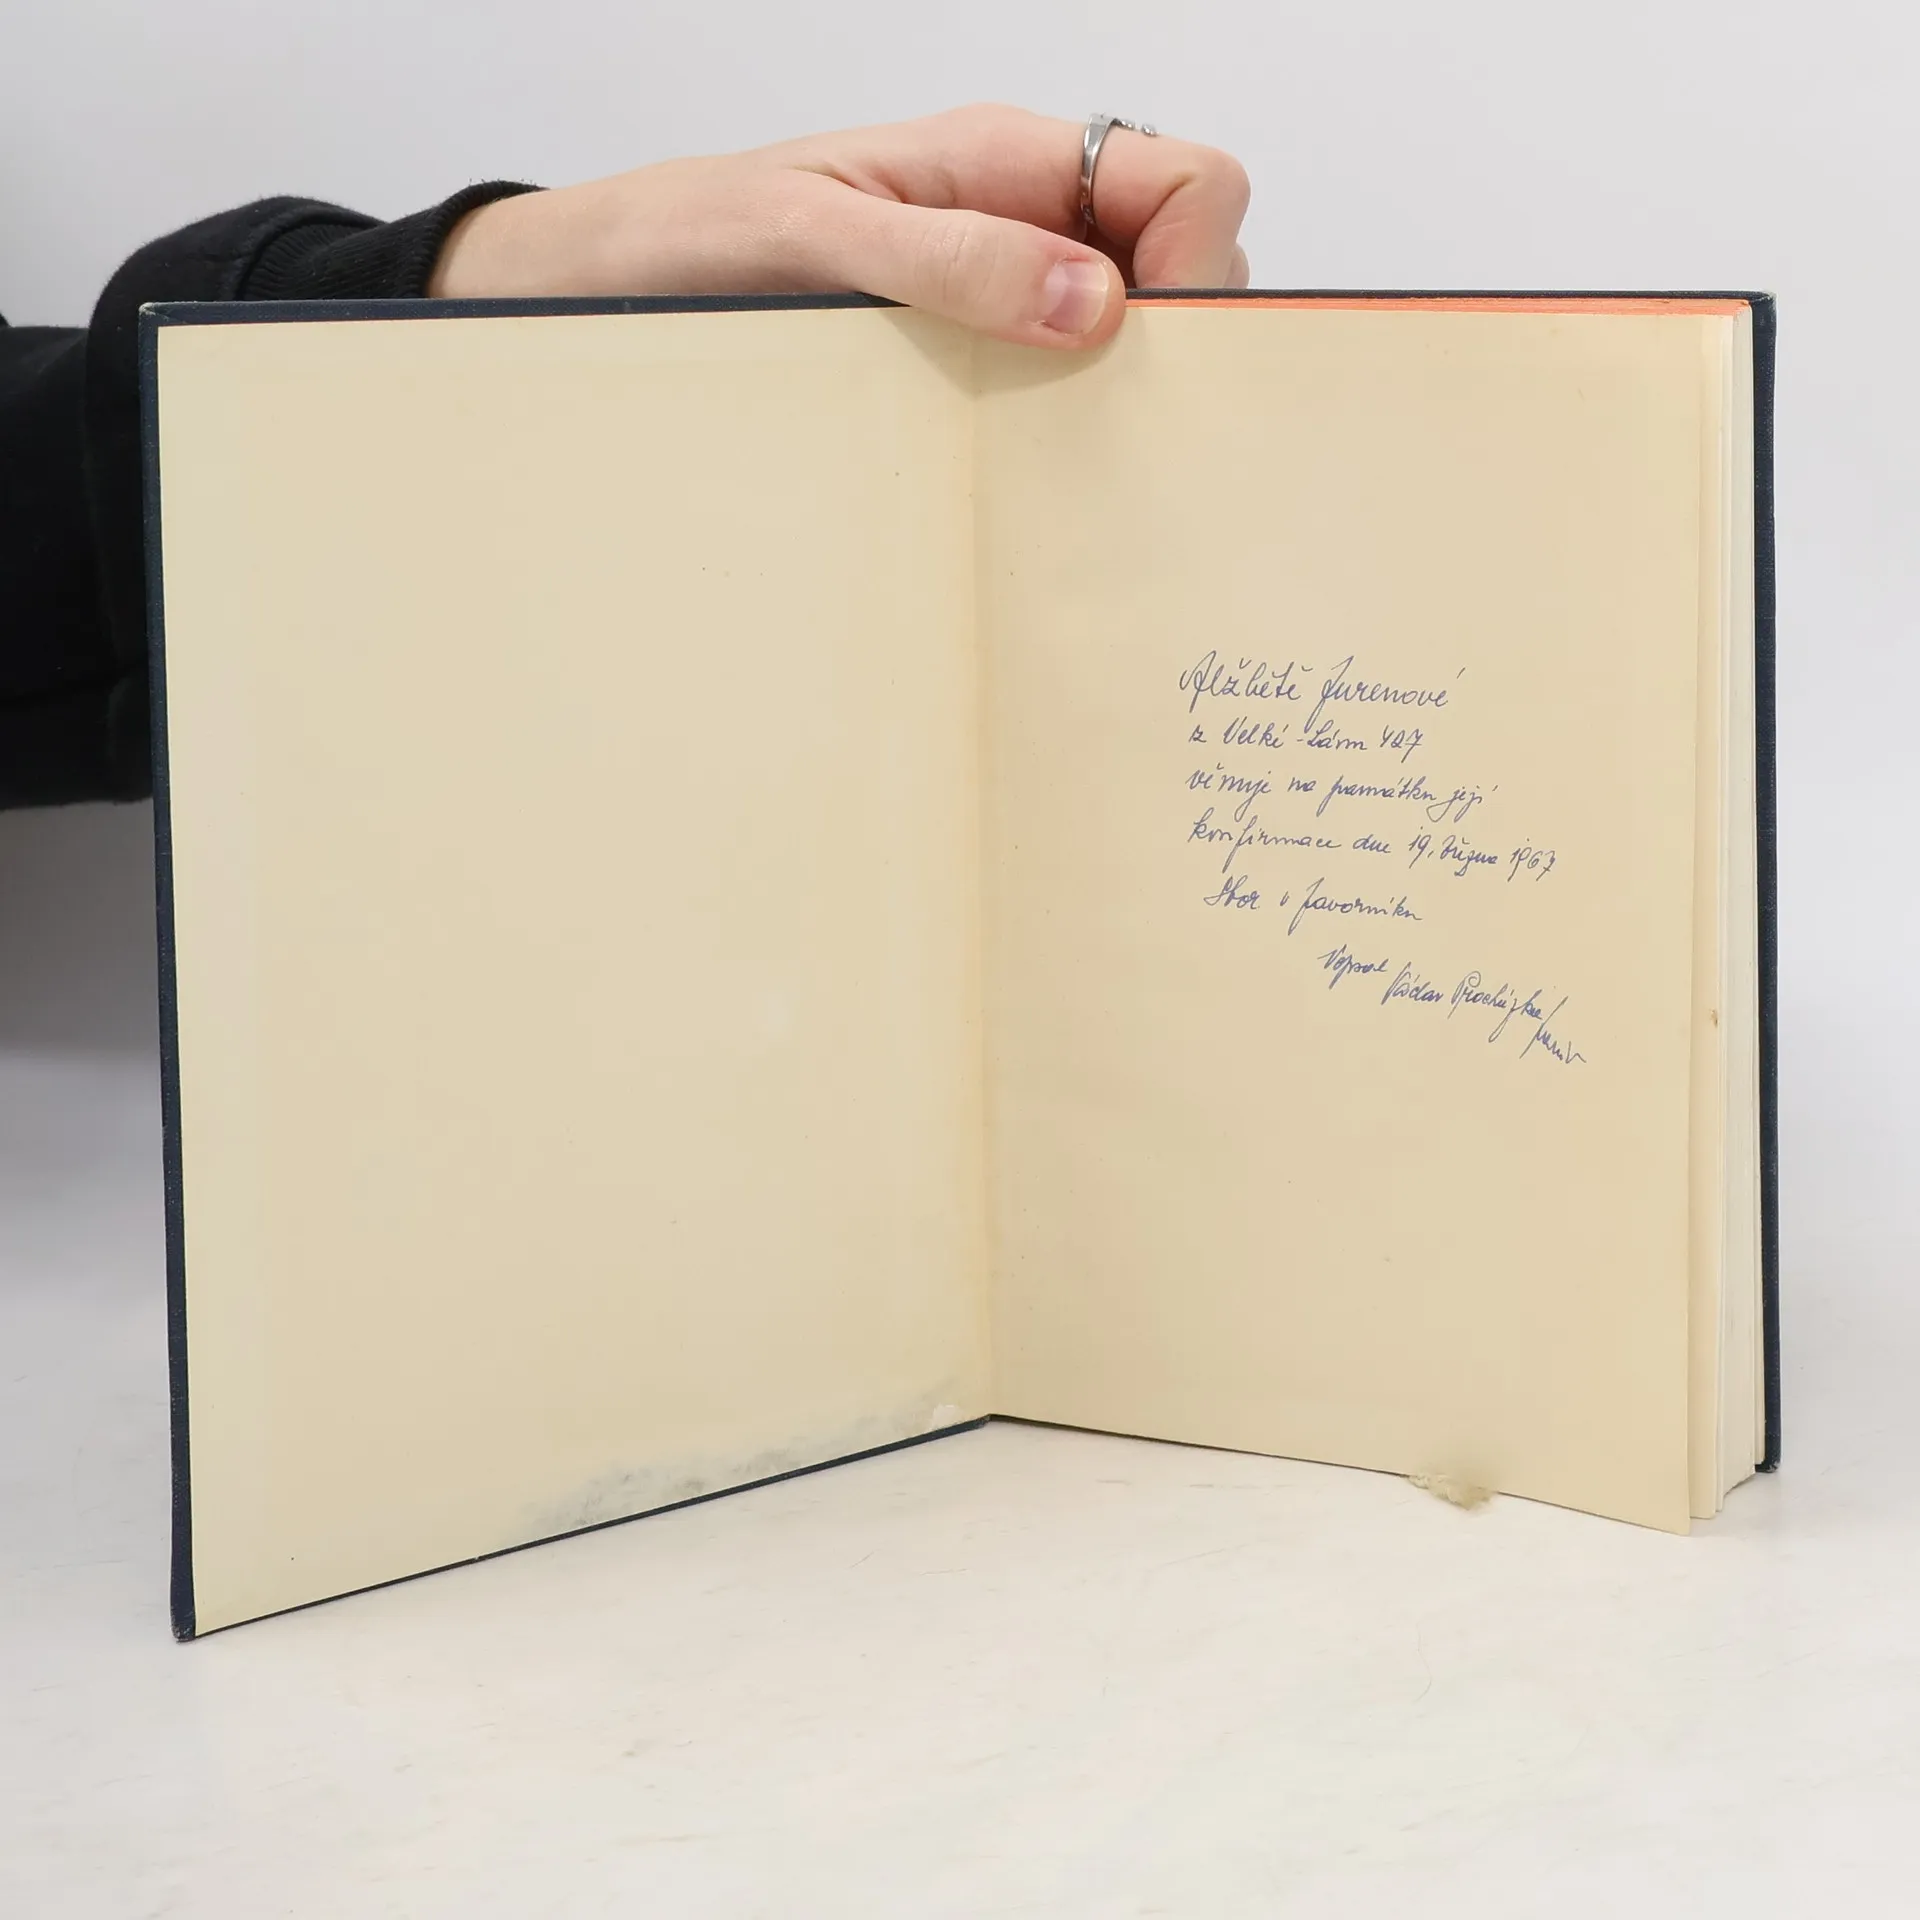 Alžbětě Jurenové
z Velké - Lárm 427
věnuje na památku její
konfirmace dne 19. března 1967
Sbor v Javorníku
Václav Procházka